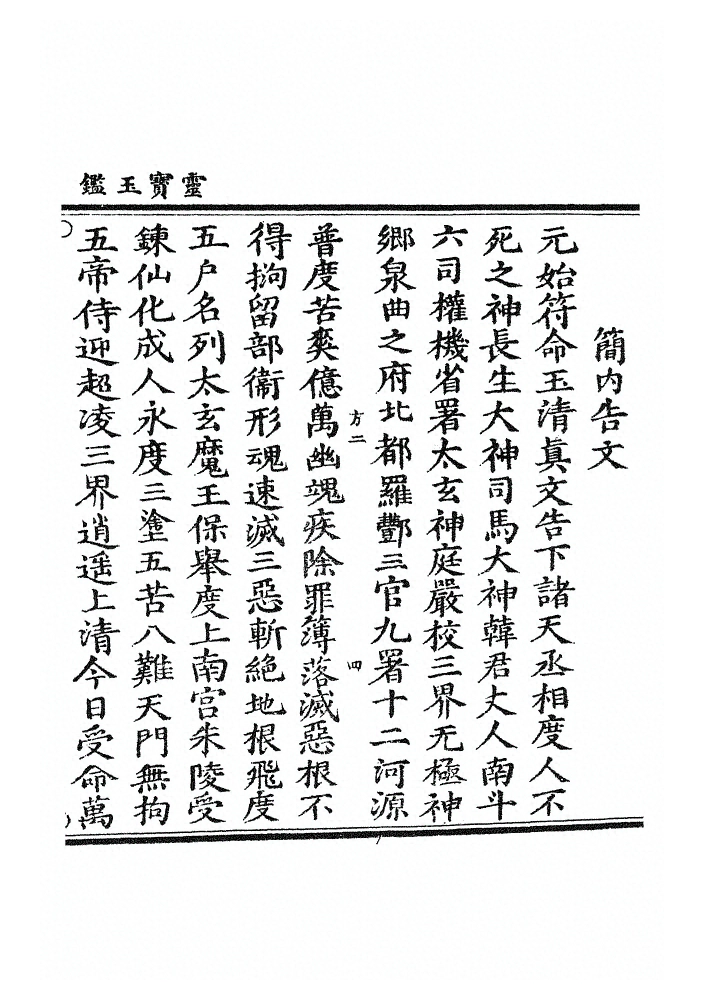 靈寶玉鑑
簡內告文
元始符命玉清真文告下諸天丞相度人不
死之神長生大神司馬大神韓君丈人南斗
六司權機省署太玄神庭嚴校三界无極神
鄉泉曲之府北都羅酆三官九署十二河源
方二
四
普度苦爽億萬幽魂疾除罪簿落滅惡根不
得拘留部衛形魂速滅三惡斬絕地根飛度
五户名列太玄魔王保舉度上南宮朱陵受
鍊仙化成人永度三塗五苦八難天門無拘
五帝侍迎超凌三界逍遥上清今日受命萬